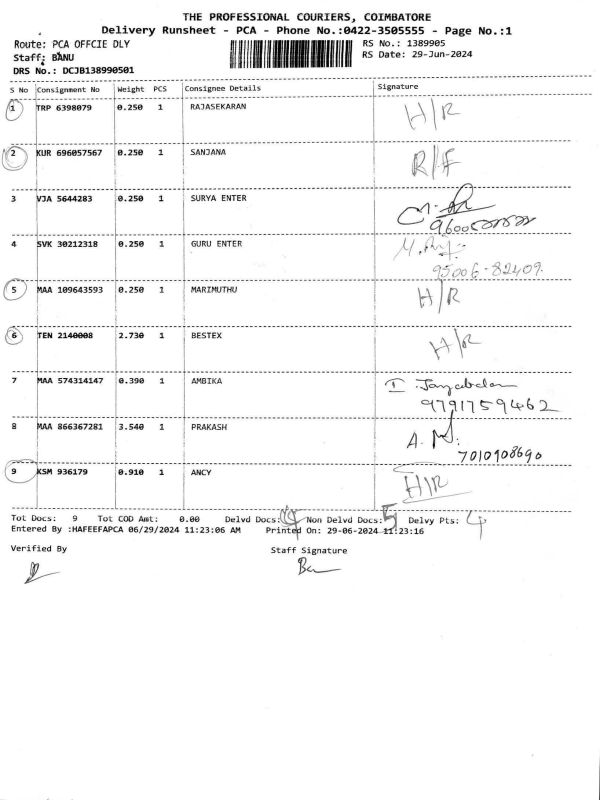 THE PROFESSIONAL COURIERS, COIMBATORE
Delivery Runsheet - PCA - Phone No.:0422-3505555 - Page No.:1
Route: PCA OFFCIE DLY RS No.: 1389905
Staff: BANU RS Date: 29-Jun-2024
DRS No.: DCJB138990501
S No Consignment No Weight PCS Consignee Details Signature
1 TRP 6398079 0.250 1 RAJASEKARAN H/R
2 KUR 696057567 0.250 1 SANJANA R/F
3 VJA 5644283 0.250 1 SURYA ENTER
4 SVK 30212318 0.250 1 GURU ENTER
95006-82409.
5 MAA 109643593 0.250 1 MARIMUTHU H/R
6 TEN 2140008 2.730 1 BESTEX H/R
7 MAA 574314147 0.390 1 AMBIKA
9791759462
8 MAA 866367281 3.540 1 PRAKASH
7010908690
9 KSM 936179 0.910 1 ANCY H/R
Tot Docs: 9 Tot COD Amt: 0.00 Delvd Docs: 4 Non Delvd Docs: 5 Delvy Pts: 4
Entered By :HAFEEFAPCA 06/29/2024 11:23:06 AM Printed On: 29-06-2024 11:23:16
Verified By Staff Signature